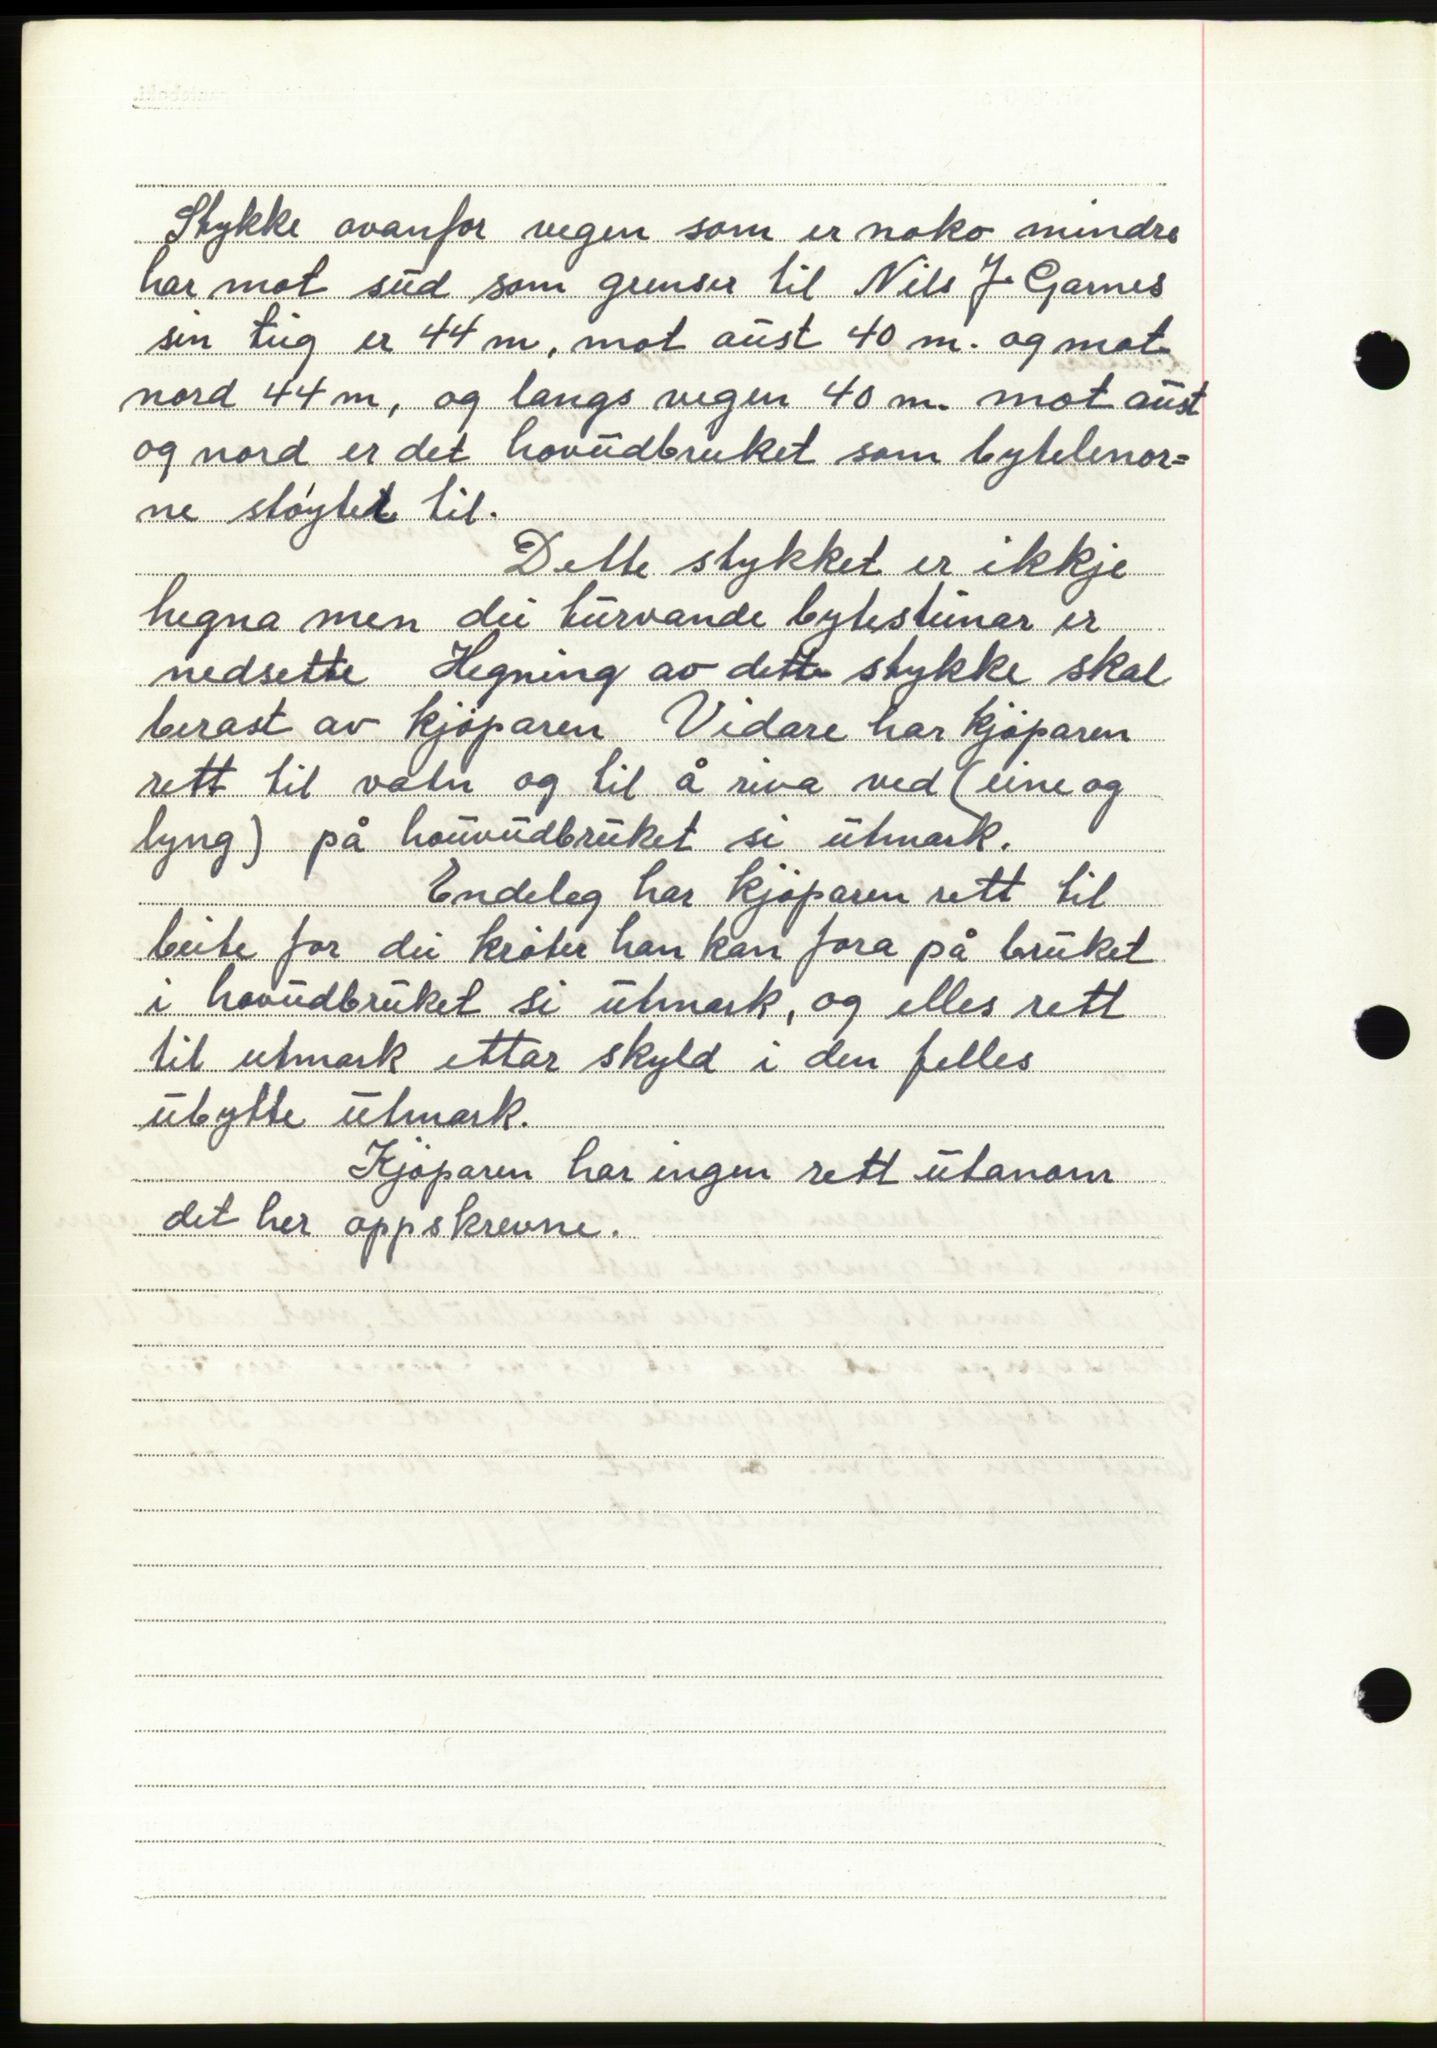 Stykke ovanfor vegen som er noko mindre
har mot süd som grenser til Nils J. Garnes
sin teig er 44 m, mot aüst 40 m. og mot
nord 44 m, og langs vegen 40 m. mot aüst
og nord er det hovüdbruket som bytelenor=
ne støyter til.
Dette stykket er ikkje
hegna men dei türvande bytesteinar er
nedsette Hegning av dette stykke skal
berast av kjøparen Vidare har kjøparen
rett til vatn og til å riva ved (eine og
lyng) på hoüvüdbrüket si ütmark.
Endeleg har kjøparen rett til
beite for dei krøter han kan fora på brüket
i hovüdbrüket si ütmark, og elles rett
til utmark ettar skyld i den felles
übytte ütmark.
Kjøparen har ingen rett ütanom
det her oppskrevne.